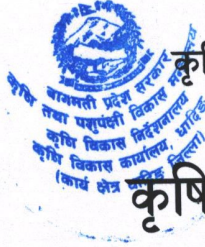 बागमती प्रदेश सरकार
कृषि तथा पशुपंछी विकास मन्त्रालय
कृषि विकास निर्देशनालय
कृषि विकास कार्यालय, धादिङ
(कार्य क्षेत्र धादिङ जिल्ला)
कृषि
कृषि